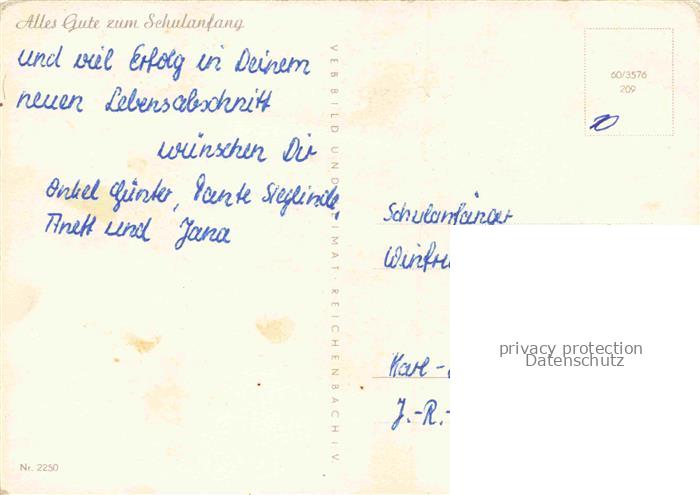 Alles Gute zum Schulanfang
und viel Erfolg in Deinem
neuen Lebensabschnitt
wünschen Dir
Onkel Günter, Tante Sieglinde,
Anett und Jana
VEB BILD UND HEIMAT · REICHENBACH I. V.
60/3576
209
Schulanfänger
Winfri
Karl-
J.-R.-
privacy protection
Datenschutz
Nr. 2250